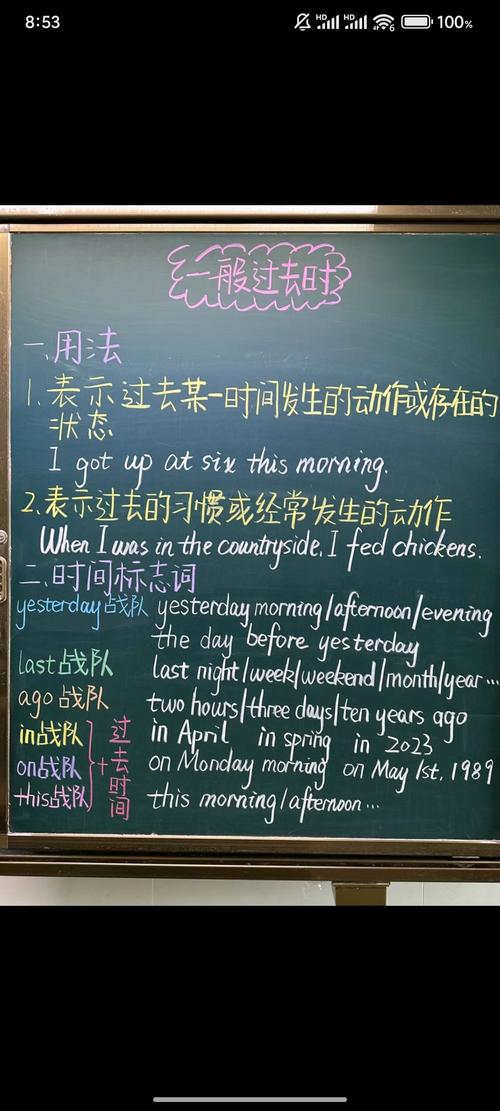 8:53
HD HD 6 100%
一般过去时
一、用法
1. 表示过去某一时间发生的动作或存在的
状态
I got up at six this morning.
2. 表示过去的习惯或经常发生的动作
When I was in the countryside, I fed chickens.
二、时间标志词
yesterday战队 yesterday morning/afternoon/evening
the day before yesterday
last战队 last night/week/weekend/month/year…
ago战队 two hours/three days/ten years ago
in战队 in April in spring in 2023
on战队 on Monday morning on May 1st, 1989
this战队 this morning/afternoon…
+ 过去时间